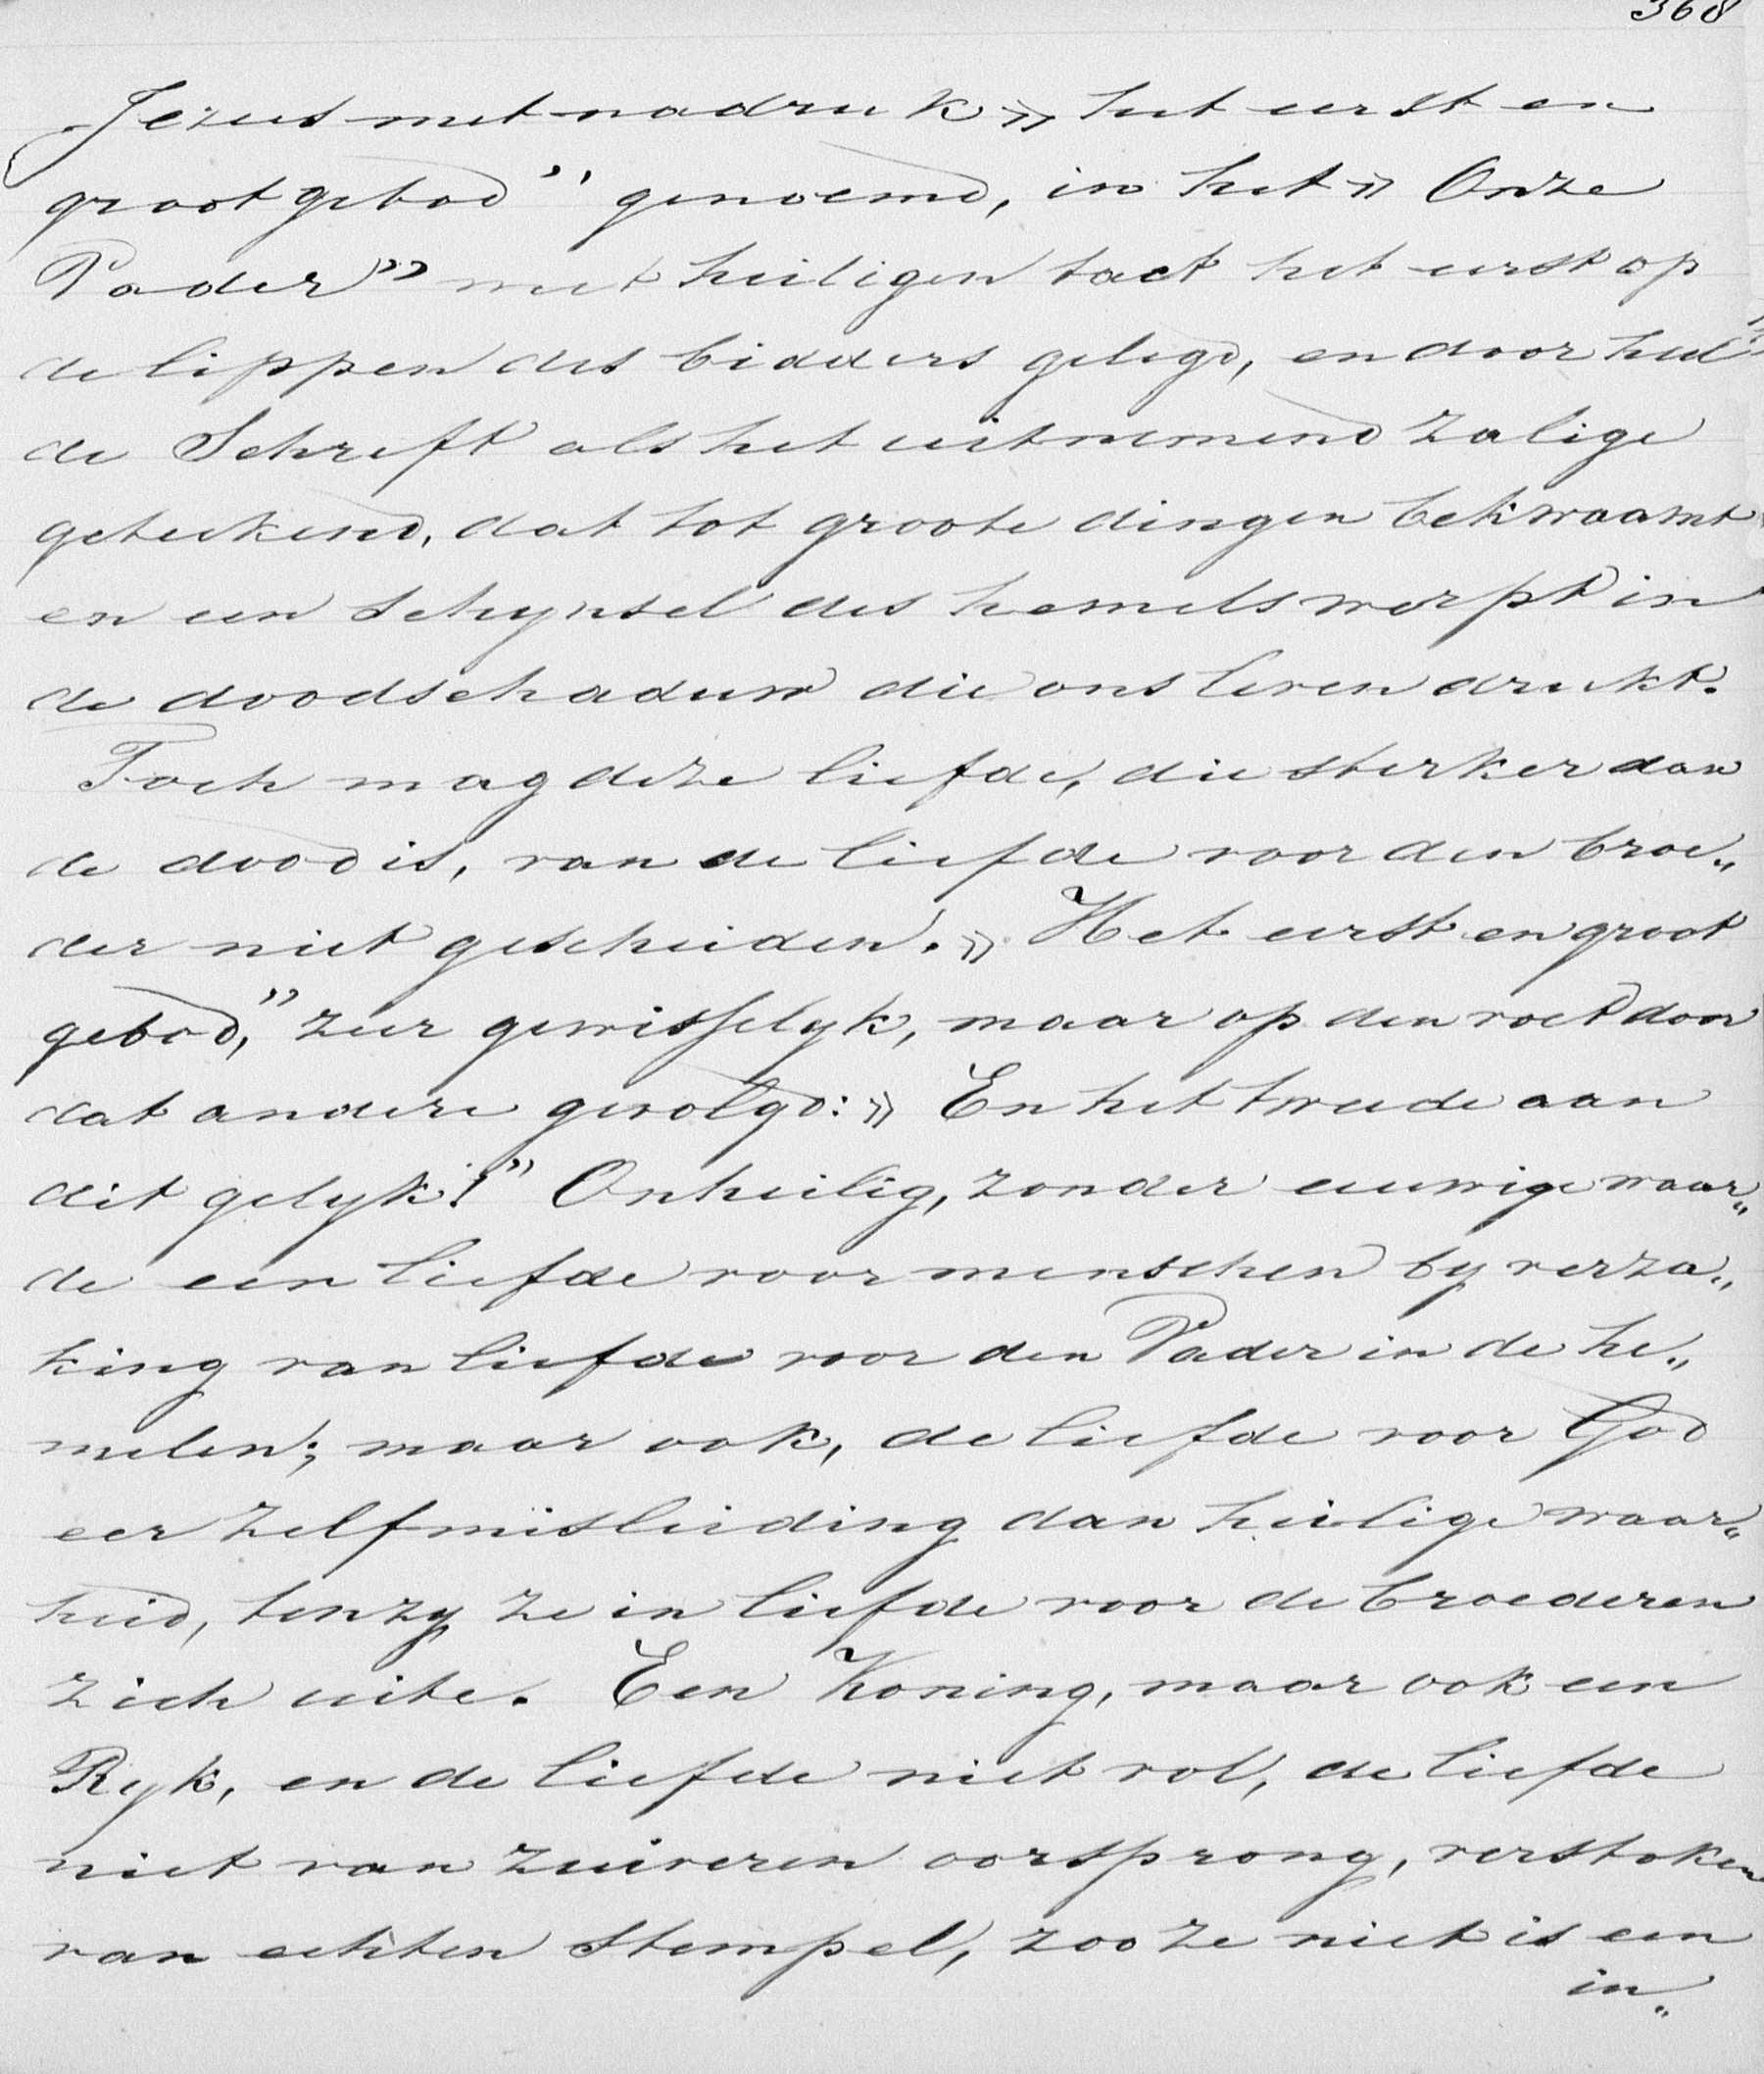 368
Jezus met nadruk » het eerst en
groot gebod" genoemd, in het » Onze
Vader" met heiligen tact het eerst op
de lippen des bidders gelegd, en door heel
de Schrift als het uitnemend zalige
geteekend, dat tot groote dingen bekwaamt
en een schynsel des hemels werpt in
de doodschaduw die ons leven drukt.
Toch mag deze liefde, die sterker dan
de dood is, van de liefde voor den broe„
der niet gescheiden. » Het eerst en groot
gebod," zeer gewisselyk, maar op den voet door
dat andere gevolgd: » En het tweede aan
dit gelyk!" Onheilig, zonder eeuwige waar„
de een liefde voor menschen by verza„
king van liefde voor den Vader in de he„
melen; maar ook, de liefde voor God
eer zelfmisleiding dan heilige waar„
heid, tenzy ze in liefde voor de broederen
zich uite. Een Koning, maar ook een
Ryk, en de liefde niet vol, de liefde
niet van zuiveren oorsprong, verstoken
van echten stempel, zoo ze niet is een
in„